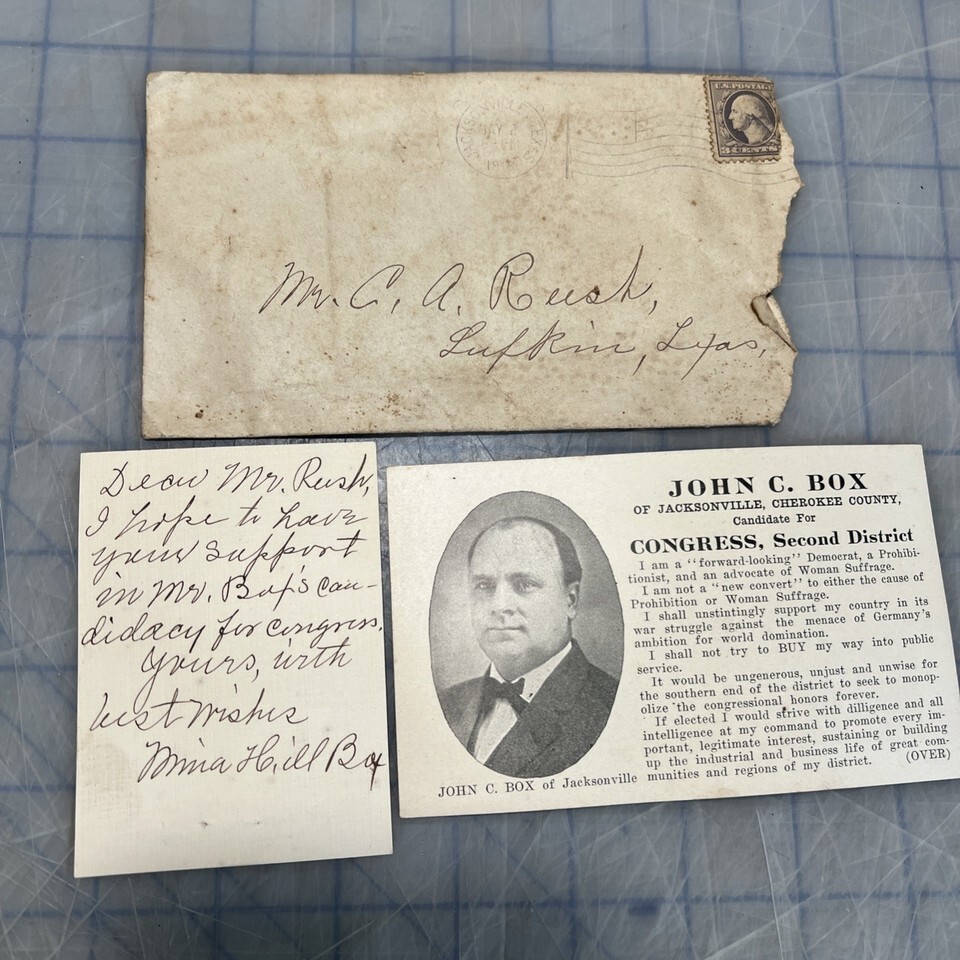 JACKSONVILLE TEXAS
U.S. POSTAGE
3 CENTS 3
Mr. C. A. Rush,
Lufkin, Texas,
Dear Mr. Rush,
I hope to have
your support
in Mr. Box's can-
didacy for congress.
Yours, with
best wishes
Mina Hill Box
JOHN C. BOX
OF JACKSONVILLE, CHEROKEE COUNTY,
Candidate For
CONGRESS, Second District
I am a "forward-looking" Democrat, a Prohibi-
tionist, and an advocate of Woman Suffrage.
I am not a "new convert" to either the cause of
Prohibition or Woman Suffrage.
I shall unstintingly support my country in its
war struggle against the menace of Germany's
ambition for world domination.
I shall not try to BUY my way into public
service.
It would be ungenerous, unjust and unwise for
the southern end of the district to seek to monop-
olize the congressional honors forever.
If elected I would strive with dilligence and all
intelligence at my command to promote every im-
portant, legitimate interest, sustaining or building
up the industrial and business life of great com-
munities and regions of my district. (OVER)
JOHN C. BOX of Jacksonville